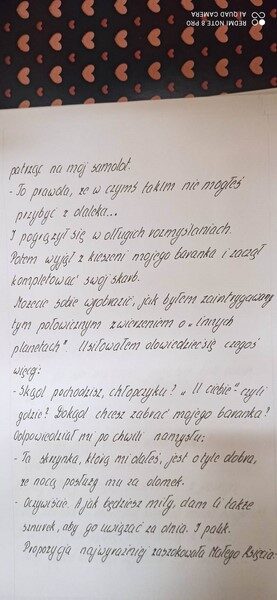 REDMI NOTE 8 PRO
AI QUAD CAMERA
patrząc na mój samolot.
- To prawda, że w czymś takim nie mogłeś
przybyć z daleka...
I pogrążył się w długich rozmyślaniach.
Potem wyjął z kieszeni mojego baranka i zaczął
kompletować swój skarb.
Możecie sobie wyobrazić, jak byłem zaintrygowany
tym połowicznym zwierzeniem o „innych
planetach". Usiłowałem dowiedzieć się czegoś
więcej:
- Skąd pochodzisz, chłopczyku? „U ciebie" czyli
gdzie? Dokąd chcesz zabrać mojego baranka?
Odpowiedział mi po chwili namysłu:
- Ta skrzynka, którą mi dałeś, jest o tyle dobra,
że nocą posłuży mu za domek.
- Oczywiście. A jak będziesz miły, dam Ci także
sznurek, aby go uwiązać za dnia. I palik.
Propozycja najwyraźniej zaszokowała Małego Księcia: